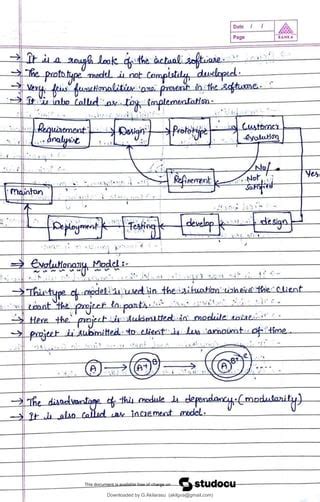 Date / /
Page
RANKA
→ It is a rough look of the actual software.
→ The prototype model is not completely developed.
→ Very few functionalities are present in the software.
→ It is also called as toy implementation.
Requirement analysis → Design → Prototype → Customer evaluation
No/
Refinement
Not satisfied
Yes
Maintan
Deployment
Testing
develop
design
⇒ Evolutionary Model:-
→ This type of model is used in the situation where the client
want the project in parts.
→ Here the project is submitted in module wise.
→ project is submitted to client is less amount of time.
A → A+B → A+B+C
→ The disadvantage of this module is dependancy. (modularity)
→ It is also called as Increment model.
This document is available free of charge on
studocu
Downloaded by G.Akilarasu (akilgra@gmail.com)